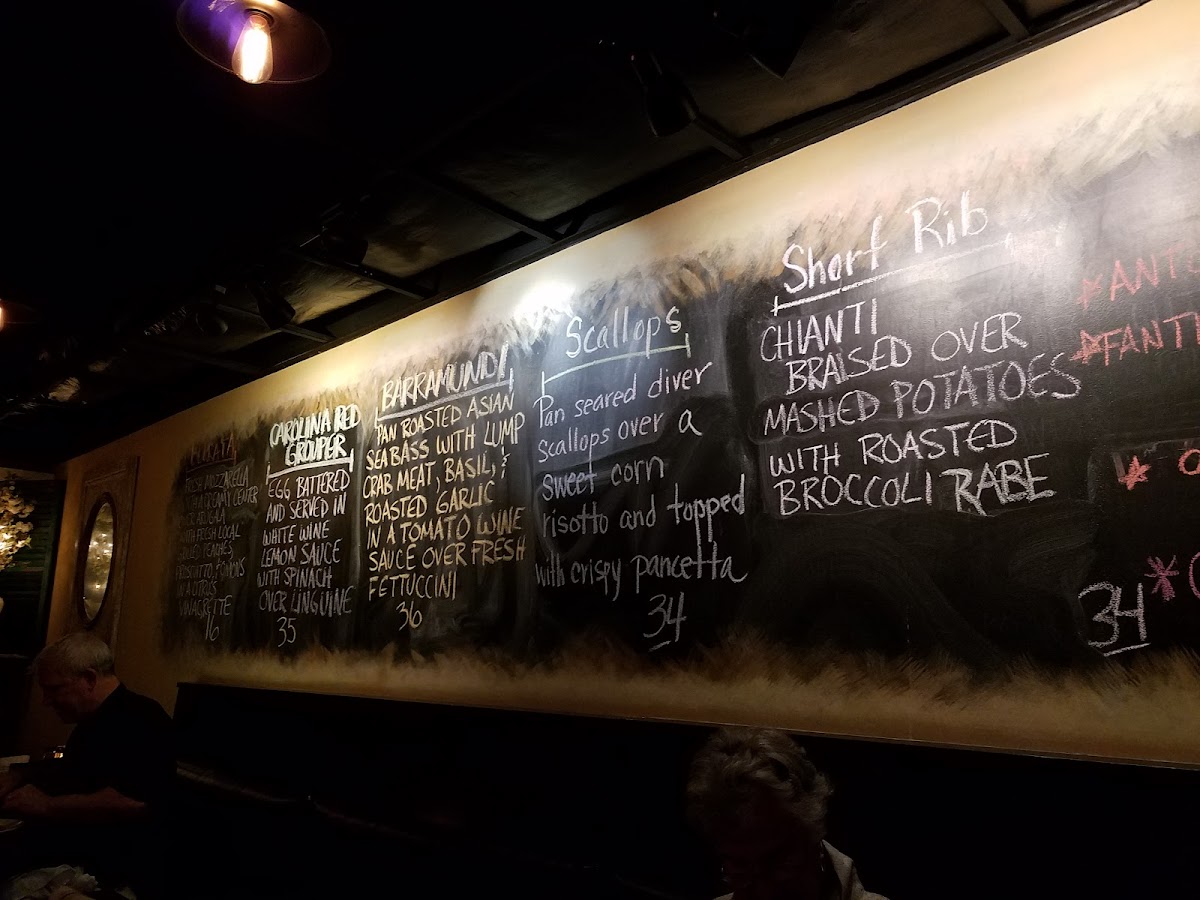 BURRATA
FRESH MOZZARELLA
CREAMY CENTER
OVER ARUGULA
WITH FRESH LOCAL
GRILLED PEACHES,
PROSCIUTTO,
IN A CITRUS
VINAGRETTE
16
CAROLINA RED
GROUPER
EGG BATTERED
AND SERVED IN
WHITE WINE
LEMON SAUCE
WITH SPINACH
OVER LINGUINE
35
BARRAMUNDI
PAN ROASTED ASIAN
SEA BASS WITH LUMP
CRAB MEAT, BASIL, &
ROASTED GARLIC
IN A TOMATO WINE
SAUCE OVER FRESH
FETTUCCINI
36
Scallops
Pan seared diver
scallops over a
sweet corn
risotto and topped
with crispy pancetta
34
Short Rib
CHIANTI
BRAISED OVER
MASHED POTATOES
WITH ROASTED
BROCCOLI RABE
34
*ANT
*FANT
*
*